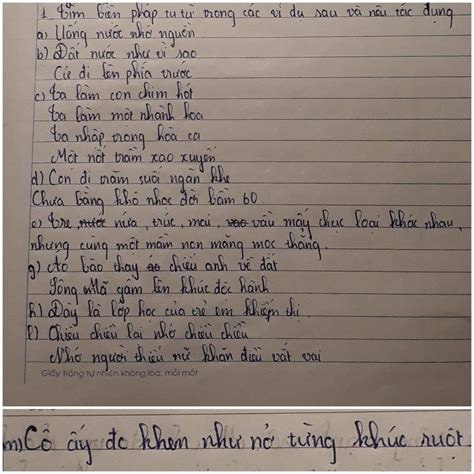 1. Tìm biện pháp tu từ trong các ví dụ sau và nêu tác dụng
a) Uống nước nhớ nguồn
b) Đất nước như vì sao
Cứ đi lên phía trước
c) Ta làm con chim hót
Ta làm một nhành hoa
Ta nhập trong hoà ca
Một nốt trầm xao xuyến
d) Con đi trăm suối ngàn khe
Chưa bằng khó nhọc đời bầm 60
e) Tre nứa, trúc, mai, vầu mấy chục loại khác nhau,
nhưng cùng một mầm non măng mọc thẳng.
g) Áo bào thay chiếu anh về đất
Sông Mã gầm lên khúc độc hành
h) Đây là lớp học của trẻ em khiếm thị
l) Chiều chiều lại nhớ chiều chiều
Nhớ người thiếu nữ khăn điều vắt vai
Giấy trắng tự nhiên không lóa, mỏi mắt
m) Cô ấy đc khen như nở từng khúc ruột.